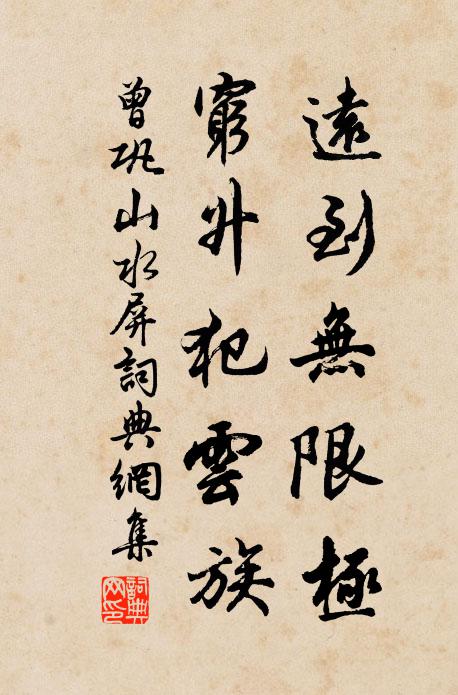 遠到無限極
窮升犯雲族
曾巩山水屏詞典網集
詞典网印